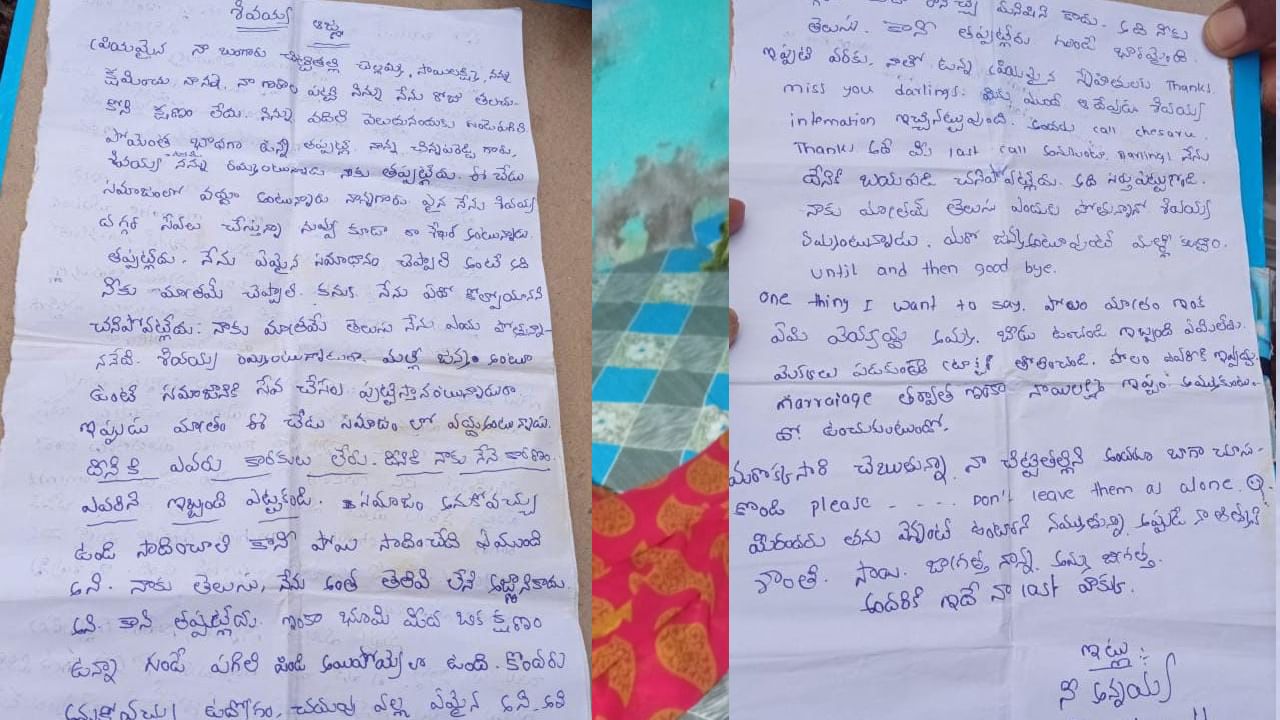 శివయ్య ఆజ్ఞ
ప్రియమైన నా బంగారు చిట్టితల్లి చెల్లమ్మ, సాయిలక్ష్మి, నన్ను
క్షమించు. నాన్న, నా గురించి నిన్ను నేను రోజు తలచు-
కోని క్షణం లేదు. నిన్ను వదిలి వెలుతునందుకు గుండెపగిలి
పోయెంత బాధగా ఉన్నా తప్పట్లే. నాన్న చిన్నపరెడ్డి గారు,
శివయ్య నన్ను రమ్మంటున్నాడు నాకు తప్పట్లేదు. ఈ చేడు
సమాజంలో వద్దూ అంటున్నారు నాన్నగారు పైన నేను శివయ్య
దగ్గర సేవలు చేస్తున్నా నువ్వు కూడా రా అంటున్నాడు.
తప్పట్లేదు. నేను ఏమైన సమాధానం చెప్పాలి అంటే అది
నీకు మాత్రమే చెప్పాలి. కనుక నేను ఏదో కోల్పోయానని
చనిపోవట్లేదు. నాకు మాత్రమే తెలుసు నేను ఎందు పోతున్నా-
ననేది. శివయ్య రమ్మంటున్నాడురా. మళ్లీ జన్మం అంటూ
ఉంటే సమాజానికి సేవ చేసేలా పుట్టిస్తానంటున్నాడురా
ఇప్పుడు మాత్రం ఈ చేడు సమాజం లో వద్దంటున్నాడు.
దీనికి ఎవరు కారకులు లేరు. దీనికి నాకు నేనే కారణం.
ఎవరిని ఇబ్బంది పెట్టకండి. సమాజం అనుకోవచ్చు
ఉండి సాధించాలి కానీ పోయి సాదించేది ఏముంది
అని. నాకు తెలుసు, నేను అంత తెలివి లేని అజ్ఞానికాదు
అని. కానీ తప్పట్లేదు. ఇంకా భూమి మీద ఒక క్షణం
ఉన్నా గుండే పగిలి పిండి అయిపోయేలా ఉంది. కొందరు
అనుకోవచ్చు ఉద్యోగం, చదువు వల్ల ఏమైన అని అది
మనిషిని కాదు. అది నీకు
తెలుసు. కానీ తప్పట్లేదు గుండె భారమైంది.
ఇప్పటి వరకు, నాతో ఉన్న ప్రియమైన స్నేహితులకు Thanks.
miss you darlings. ముందే ఆ దేవుడు శివయ్య
intemation ఇచ్చినట్టువుంది. అందరు call chesaru.
Thanks అదే మీ last call అనుకుంటా. Darlings నేను
దేనికి బయపడి చనిపోవట్లేదు. అది గుర్తుపెట్టుకోండి.
నాకు మాత్రమే తెలుసు ఎందుకు పోతున్నానో శివయ్య
రమ్మంటున్నాడు. మరో జన్మఅంటూవుంటే మళ్లీ కలుద్దాం.
until and then good bye.
one thing I want to say. పొలం మాత్రం ఇంక
ఏమి చెయ్యొద్దు అమ్మ. బాడు ఉంచండి ఇబ్బంది ఏమిలేదు.
మొక్కలు పడుకుంటే తొలించండి. పొలం ఎవరికి ఇవ్వద్దు.
marraiage తర్వాత ఇంకా సాయిలక్ష్మి ఇష్టం అమ్ముకుంటు-
దో. ఉంచుకుంటుందో.
మరొక్కసారి చెబుతున్నా నా చిట్టితల్లిని అందరూ బాగా చూసు-
కొండి please - - - - Don't leave them as alone.
మీరందరు తను వెన్నంటే ఉంటారని నమ్ముతున్నా. అప్పుడే నా ఆత్మకి
శాంతి. సాయి. జాగ్రత్త నాన్న. అమ్మ జాగ్రత్త.
అందరికి ఇదే నా last వాక్కు.
ఇట్లు:
నీ అన్నయ్య